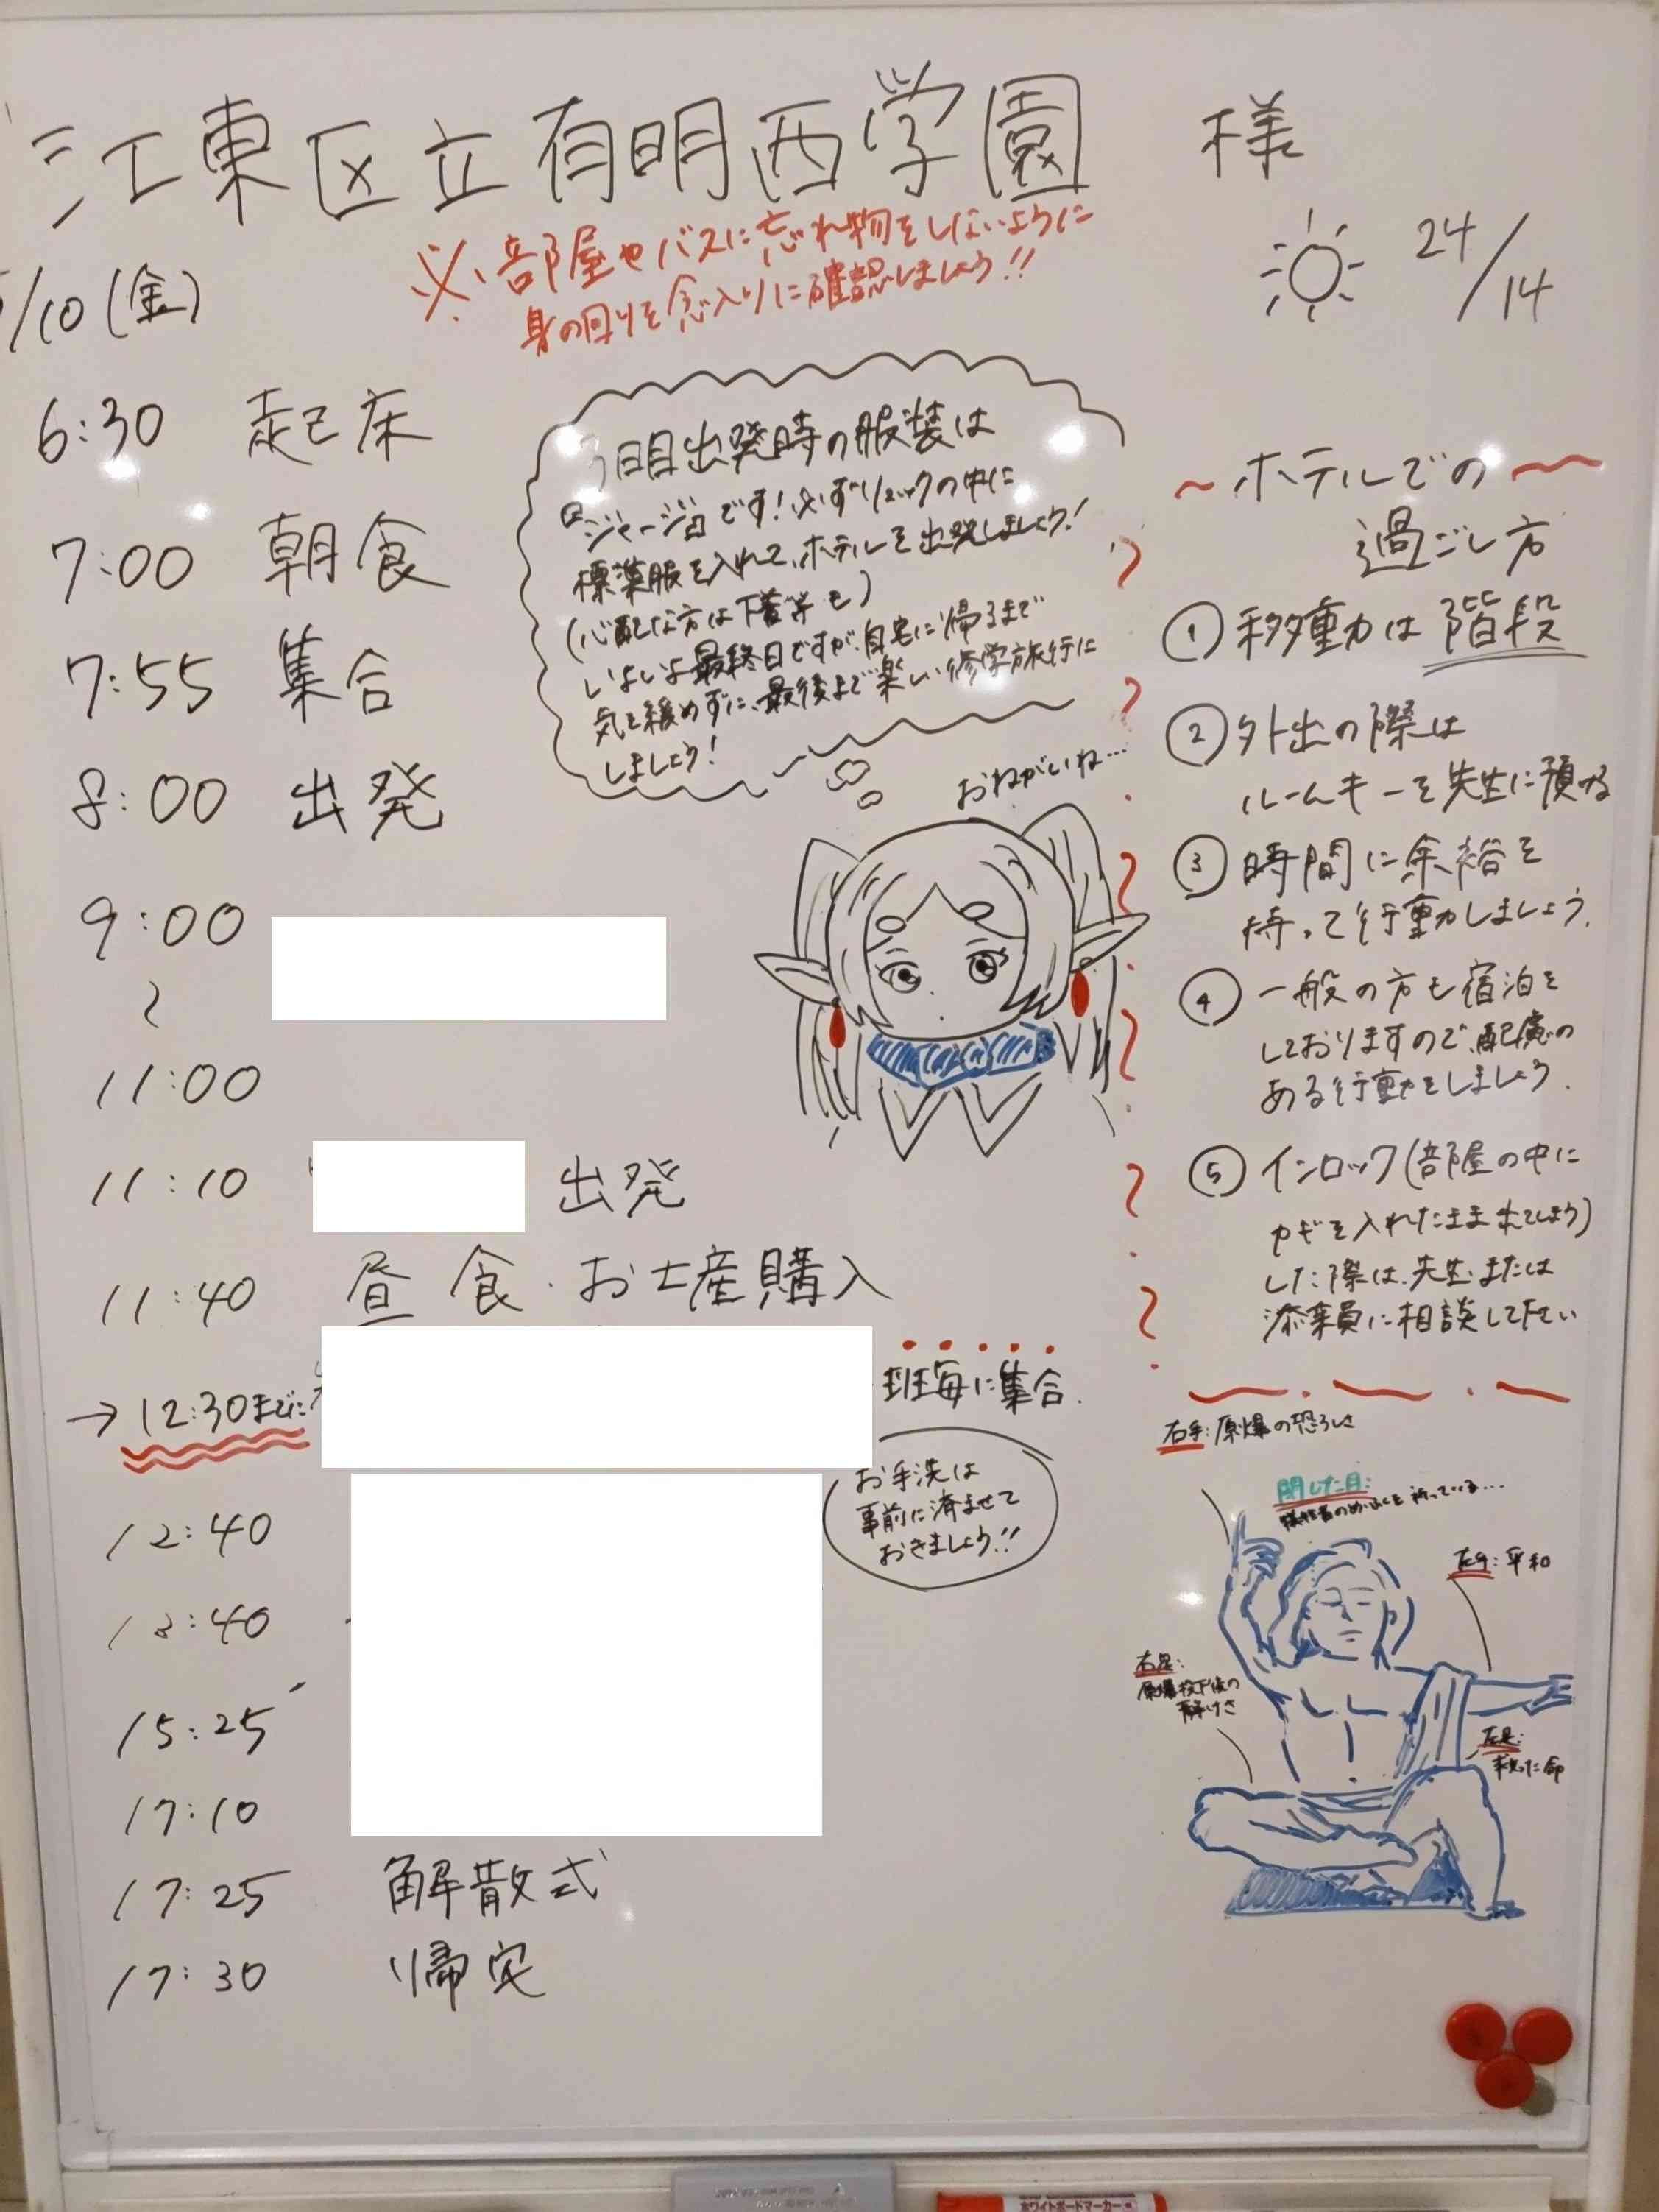 江東区立有明西学園 様
※部屋やバスに忘れ物をしないように
身の回りを念入りに確認しましょう!!
/10(金)
24/14
6:30 起床
7:00 朝食
7:55 集合
8:00 出発
9:00
〜
11:00
11:10 出発
11:40 昼食・お土産購入
→12:30までに
班毎に集合.
お手洗は
事前に済ませて
おきましょう!!
12:40
13:40
15:25
17:10
17:25 解散式
17:30 帰宅
日目出発時の服装は
『ジャージ』です!必ずリュックの中に
標準服を入れて、ホテルを出発しましょう!
(心配な方は下着等も)
いよいよ最終日ですが、自宅に帰るまで
気を緩めずに、最後まで楽しい修学旅行に
しましょう!
おねがいね…
〜ホテルでの〜
過ごし方
①移動は階段
②外出の際は
ルームキーを先生に預ける
③時間に余裕を
持って行動しましょう.
④一般の方も宿泊を
しておりますので、配慮の
ある行動をしましょう.
⑤インロック(部屋の中に
カギを入れたまま出てしまう)
した際は、先生または
添乗員に相談して下さい
右手:原爆の恐ろしさ
閉じた目:
犠牲者のめいふくを祈っている…
左手:平和
右足:
原爆投下後の
静けさ
左足:
救った命
ホワイトボードマーカー